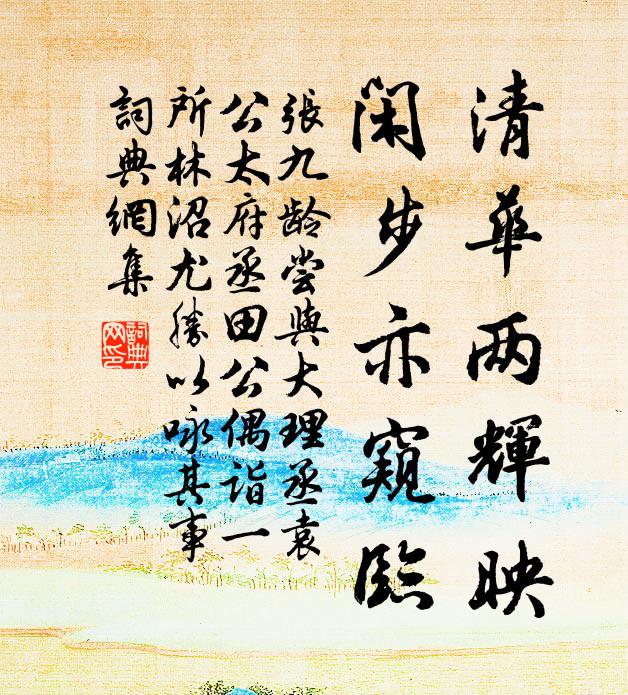 清華两輝映
闲步亦窺臨
張九龄尝與大理丞袁
公太府丞田公偶诣一
所林沼尤勝以咏其事
詞典網集
詞典
网印